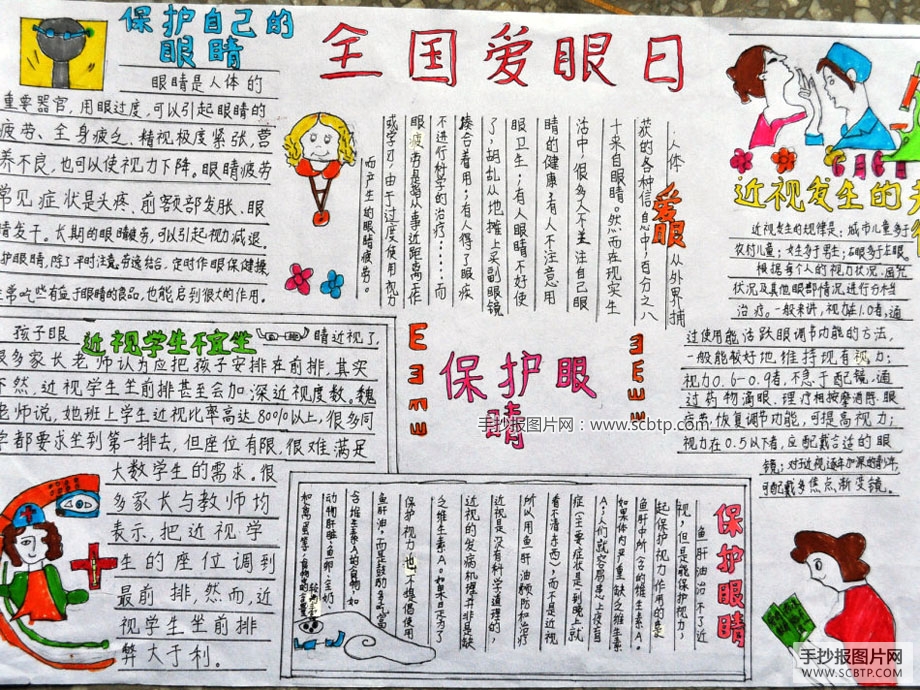 保护自己的
眼睛
眼睛是人体的
重要器官，用眼过度，可以引起眼睛的
疲劳、全身疲乏、精视极度紧张，营
养不良，也可以使视力下降。眼睛疲劳
常见症状是头疼、前额部发胀、眼
睛发干。长期的眼睛疲劳，可以引起视力减退。
护眼睛，除了平时注意劳逸结合，定时作眼保健操，
常吃些有益于眼睛的食品，也能启到很大的作用。
全国爱眼日
爱眼
人体从外界捕
获的各种信息中，百分之八
十来自眼睛。然而在现实生
活中，很多人不注意自己眼
睛的健康；有人不注意用
眼卫生；有人眼睛不好使
了，胡乱从地摊上买副眼镜
揍合着用；有人得了眼疾
不进行科学的治疗……而
眼疲劳是指从事近距离工作
或学习，由于过度使用视力
而产生的眼睛疲劳。
近视发生的
近视发生的规律是：城市儿童多于
农村儿童；女生多于男生；右眼多于左眼。
根据每个人的视力状况、曲光
状况及其他眼部情况进行分类
治疗。一般来讲，视力在1.0者，通
过使用能活跃眼调节功能的方法，
一般能被好地维持现有视力；
视力0.6-0.9者，不急于配镜，通
过药物滴眼、理疗相按摩消除眼
疲劳恢复调节功能，可提高视力；
视力在0.5以下者，应配戴合适的眼
镜；对于近视逐年加深的青少年，
可配戴多焦点渐变镜。
近视学生不宜坐
孩子眼睛近视了
很多家长老师认为应把孩子安排在前排，其实
不然，近视学生坐前排甚至会加深近视度数。魏
老师说，她班上学生近视比率高达80%以上，很多同
学都要求坐到第一排去，但座位有限，很难满足
大数学生的需求。很
多家长与教师均
表示，把近视学
生的座位调到
最前排，然而，近
视学生坐前排
弊大于利。
EƎmE
保护眼
睛
手抄报图片网：www.scbtp.com
保护眼睛
鱼肝油治不了近
视，但是能保护视力，
起保护视力作用的是
鱼肝中所含的维生素A。
如果体内严重缺乏维生素
A，人们就容易患上夜盲
症（主要症状是一到晚上就
看不清东西），而不是近视
所以用鱼肝油预防和治疗
近视是没有科学道理的，
近视的发病机理并非是缺
乏维生素A。如果只是为了
保护视力，也不提倡使用
鱼肝油，而是鼓励多吃富
含维生素A的食物，如
动物肝脏、鱼卵、全奶
手抄报图片网
WWW.SCBTP.COM